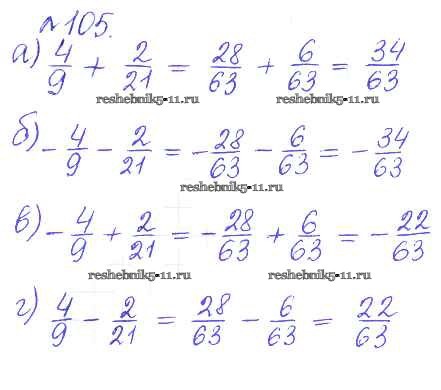 №105.
а) 4/9 + 2/21 = 28/63 + 6/63 = 34/63
reshebnik5-11.ru reshebnik5-11.ru
б) -4/9 - 2/21 = -28/63 - 6/63 = -34/63
reshebnik5-11.ru
в) -4/9 + 2/21 = -28/63 + 6/63 = -22/63
reshebnik5-11.ru reshebnik5-11.ru
г) 4/9 - 2/21 = 28/63 - 6/63 = 22/63